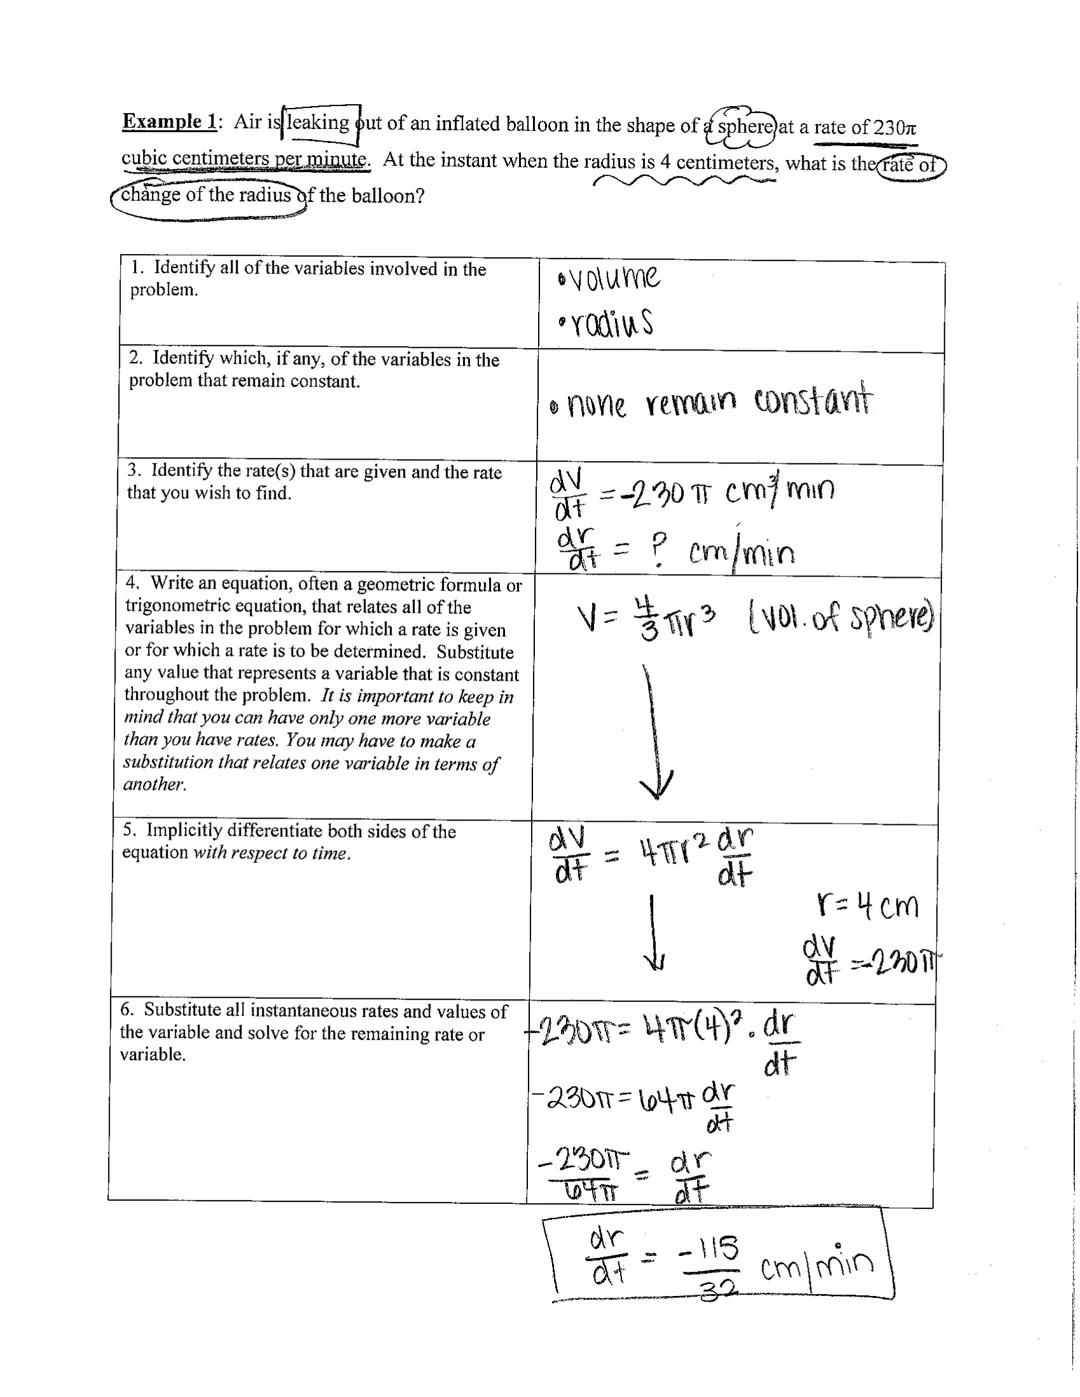 Example 1: Air is leaking out of an inflated balloon in the shape of a sphere at a rate of 230π
cubic centimeters per minute. At the instant when the radius is 4 centimeters, what is the rate of
change of the radius of the balloon?
1. Identify all of the variables involved in the
problem.
•volume
•radius
2. Identify which, if any, of the variables in the
problem that remain constant.
• none remain constant
3. Identify the rate(s) that are given and the rate
that you wish to find.
dV/dt = -230π cm³/min
dr/dt = ? cm/min
4. Write an equation, often a geometric formula or
trigonometric equation, that relates all of the
variables in the problem for which a rate is given
or for which a rate is to be determined. Substitute
any value that represents a variable that is constant
throughout the problem. It is important to keep in
mind that you can have only one more variable
than you have rates. You may have to make a
substitution that relates one variable in terms of
another.
V = 4/3 πr³ (vol. of sphere)
5. Implicitly differentiate both sides of the
equation with respect to time.
dV/dt = 4πr² dr/dt
r = 4 cm
dV/dt = -230π
6. Substitute all instantaneous rates and values of
the variable and solve for the remaining rate or
variable.
-230π = 4π(4)² · dr/dt
-230π = 64π dr/dt
-230π/64π = dr/dt
dr/dt = -115/32 cm/min